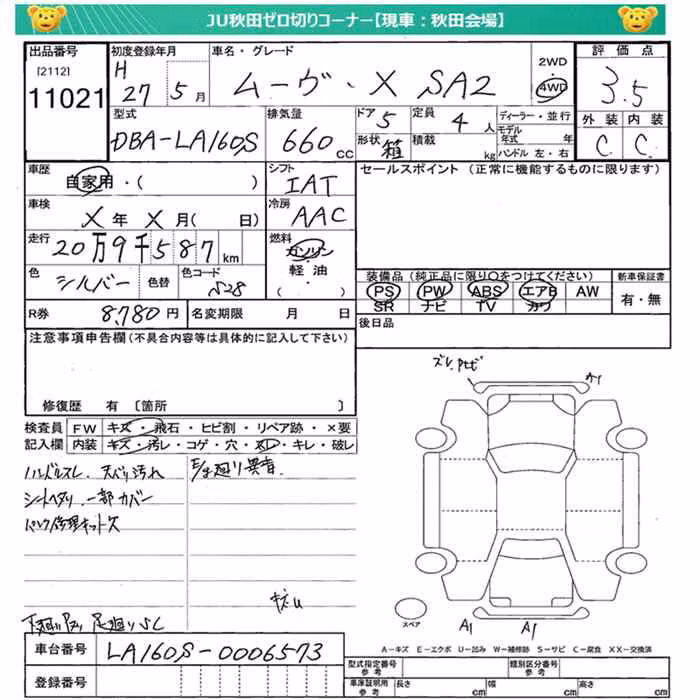 JU秋田ゼロ切りコーナー【現車：秋田会場】
出品番号 初度登録年月 車名・グレード 2WD 評価点
[2112] H 4WD
11021 27年 5月 ムーヴ・X SA2 3.5
型式 排気量 ドア 5 定員 4人 ディーラー・並行 外装 内装
DBA-LA160S 660cc 形状 箱 積載 kg モデル年式 年 C C
ハンドル 左・右
車歴 シフト セールスポイント（正常に機能するものに限ります）
自家用・( ) IAT
車検 冷房
X年X月( 日) AAC
走行 燃料
20万9千587km ガソリン・軽油・( )
色 シルバー 色替 色コード S28
装備品（純正品に限り○をつけてください） 新車保証書
PS PW ABS エアB AW 有・無
SR ナビ TV カワ
R券 8,780円 名変期限 月 日
後日品
注意事項申告欄（不具合内容等は具体的に記入して下さい）
修復歴 有〔箇所 〕
検査員記入欄 FW キズ・飛石・ヒビ割・リペア跡・×要
内装 キズ・汚レ・コゲ・穴・スレ・キレ・破レ
ハンドルスレ 天バリ汚れ
シートヘタリ 一部カバー
パンク修理キット欠
足廻り異音
キズU
下廻り 足廻りSC
A1 A1
スペア
A－キズ E－エクボ U－凹み W－補修跡 S－サビ C－腐食 XX－交換済
車台番号 LA160S-0006573
登録番号
型式指定番号 参考 類別区分番号 参考
車庫証明用 参考 長さ cm 幅 cm 高さ cm